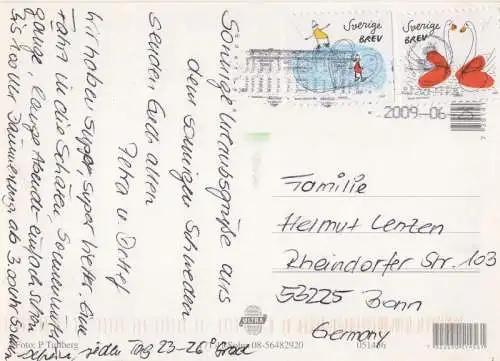 Sverige
BREV
Sverige
BREV
2009-06-25
Sonnige Urlaubsgrüße aus
dem sonnigen Schweden
senden Euch allen
Petra u. Detlef
Wir haben super, super Wetter. Eine
Fahrt in die Schären, Sonnen
gänge, lange Abende einfach schön
bis 1.00 Uhr Dämmerung ab 3.00 Uhr Sonnen
scheint, jeden Tag 23-26° Grad
Familie
Helmut Lenzen
Rheindorfer Str. 103
53225 Bonn
Germany
Foto: P Tidberg
ULTRA
Solna 08-56482920